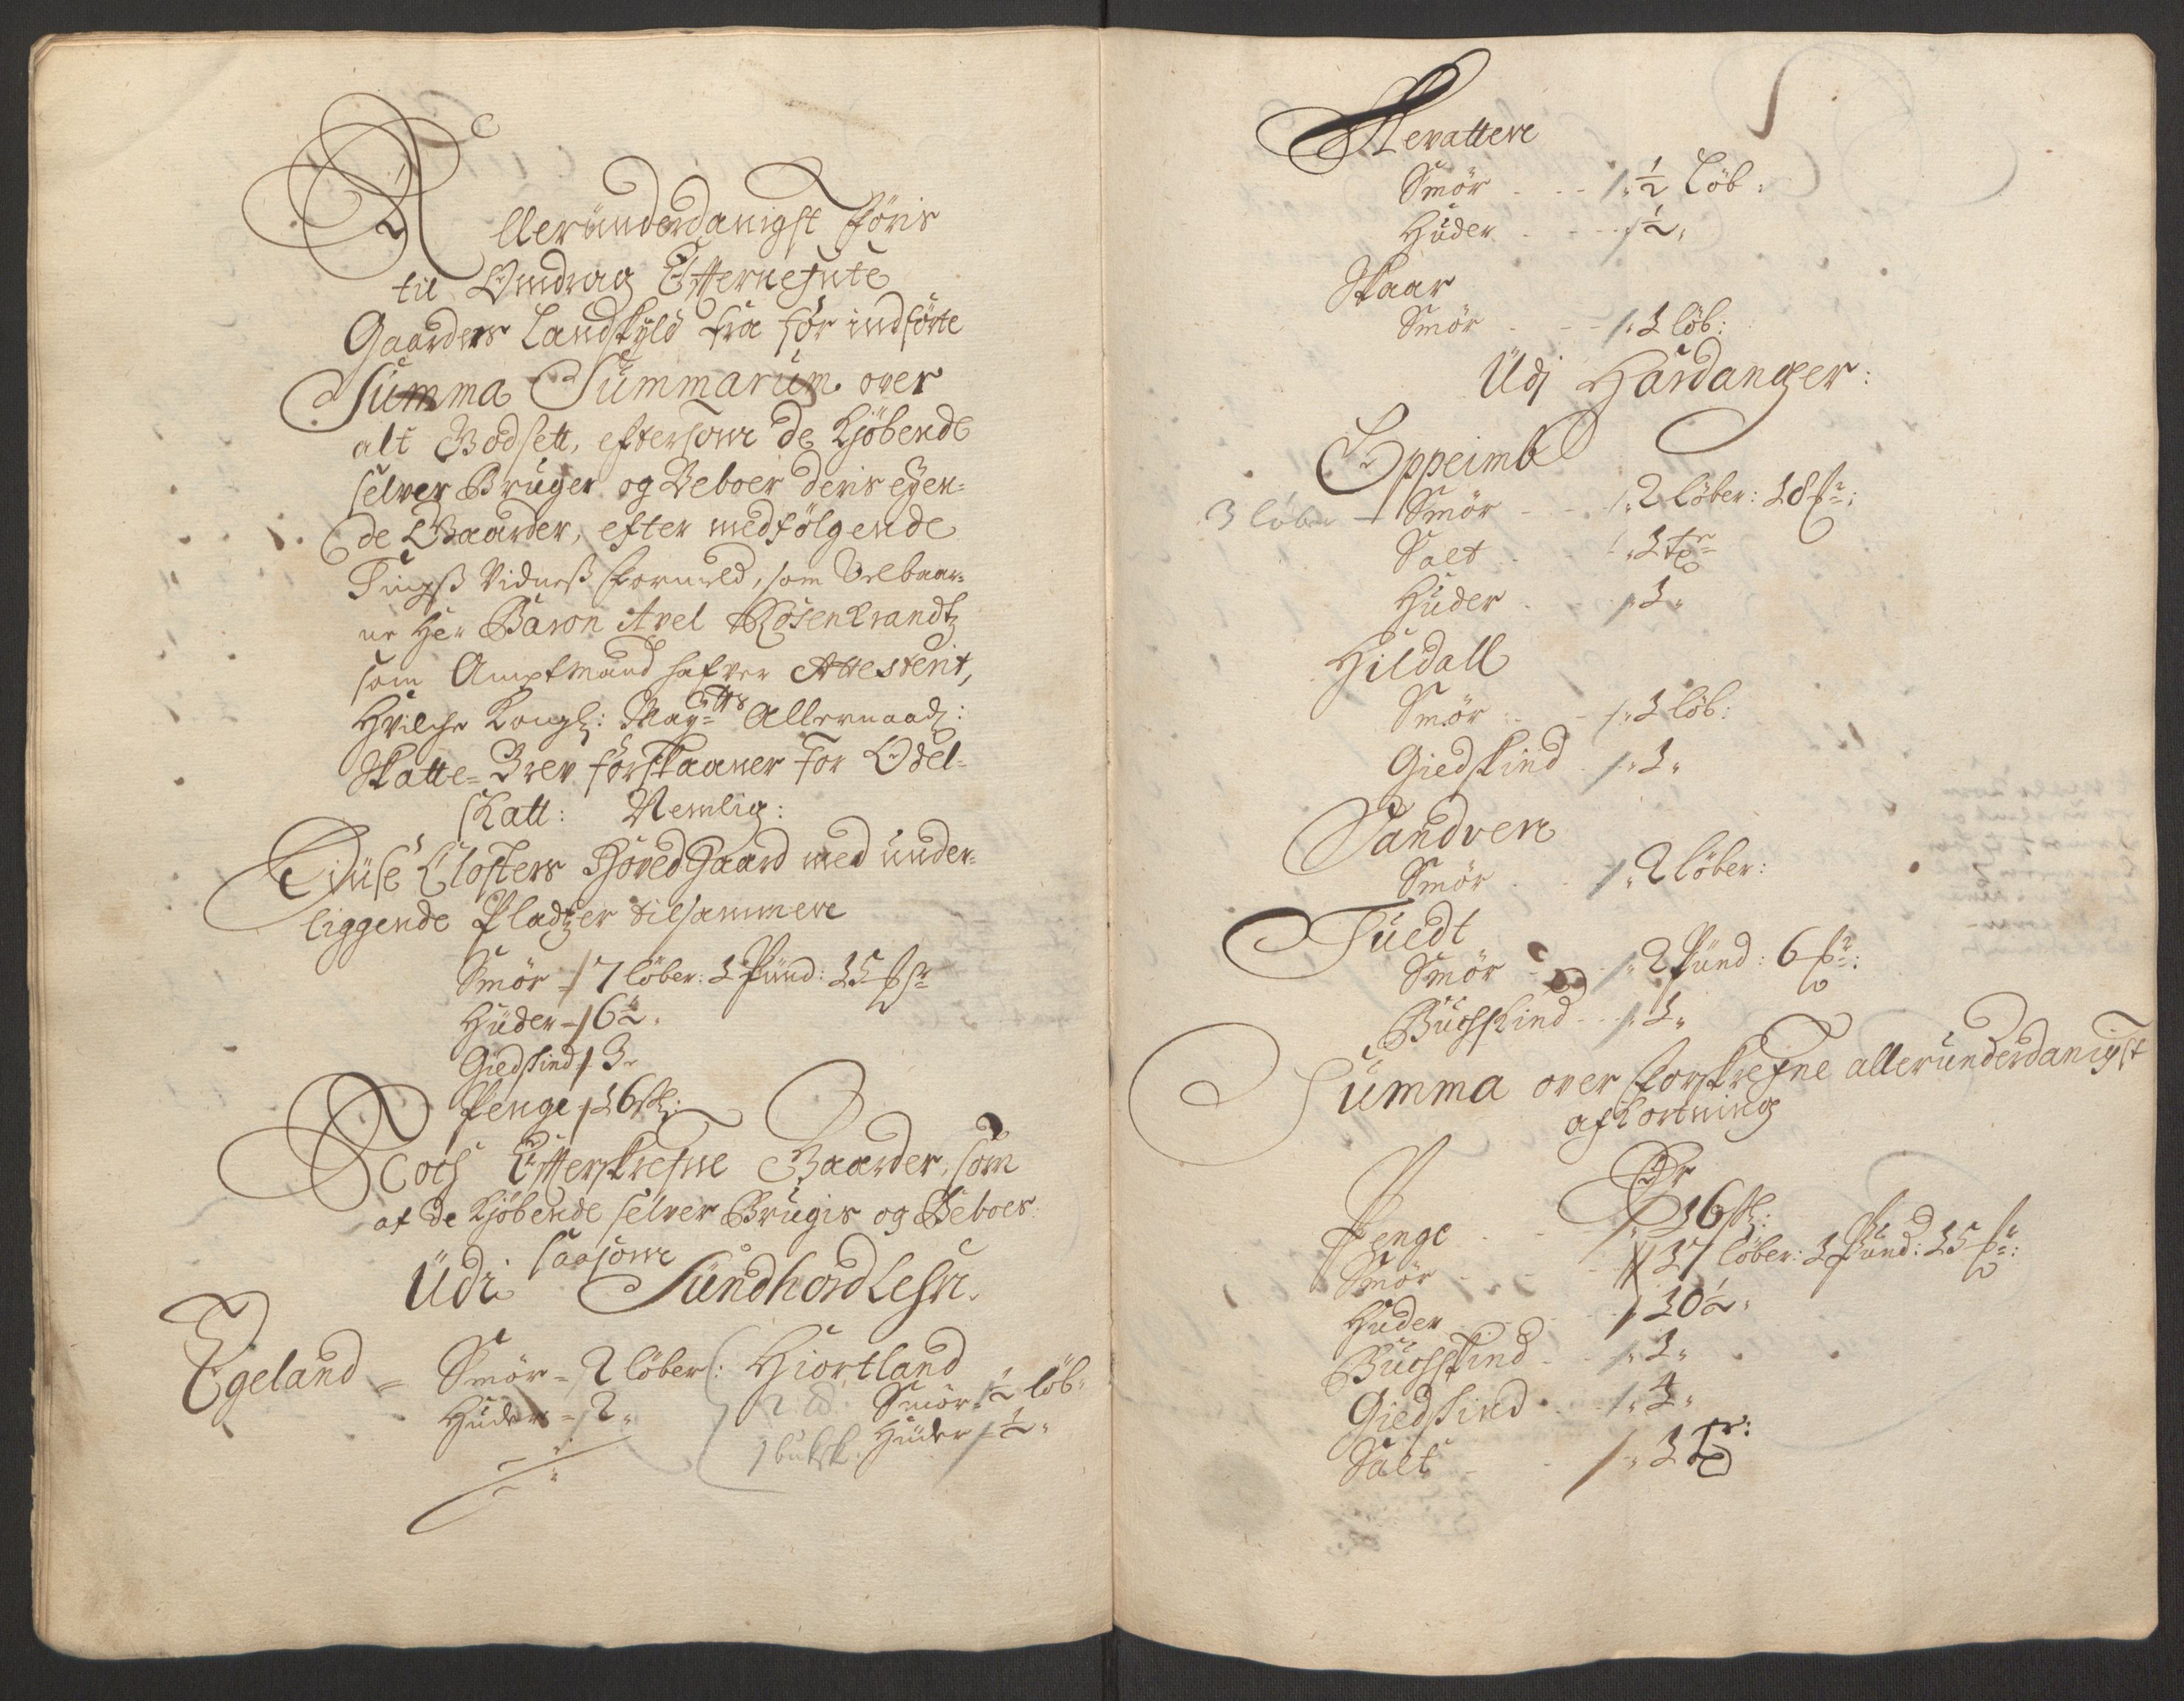 Alleründerdanigst föris
til Omdrag Effternefnte
Gaarders Landskÿld fra för indförte
Summa Summarum over
alt Godsett, eftersom de Kjöbende
selver Bruger og Beboer deris eÿen-
de Gaarder, efter medfölgende
Tingß Vidneß formeld, som Velbaar-
ne Her Baron Axel Rosenkrandtz
som Amptmand hafver Attesterit,
Hvilche Kongl: Maytts Allernaad:
Skatte-Brev forskaaner for Odel-
skatt: Nemlig:
Lÿuse Closters HovedGaard med under-
liggende Pladtzer tilsammen
Smör - 7 löber: 1 Pund: 15
Huder - 6½.
Giedskind 3.
Penge 16 sk:
Noch Effterskrefne Gaarder, som
af de Kjöbende selver Brugis og Beboes.
saasom
Udi Sundhordlehn.
Egeland - Smör - 2 löber: Hiortland
Smör ½ löb.
Huder - 2.
1 buksk. Huder ½.
Nevatten
Smör - - - ½ Löb:
Huder - - - ½.
Skaar
Smör - - - 1 löb:
Udj Hardanger:
Oppeimb
3 löber - Smör - - - 2 löber: 18
Salt - 1 tr
Huder - 1.
Hildall
Smör - - 1 löb:
Giedskind - 1.
Sandven
Smör - - 2 löber:
Tuedt
Smör - - 2 Pund: 6
Buchskind - - 1.
Summa over forskrefne allerunderdanigst
afkortning
Er
Penge - - 16 sk:
Smör - - 17 löber: 1 Pund: 15
Huder - 10½.
Buchskind - - 1.
Giedskind - - 4.
Salt - - 1 Tr: